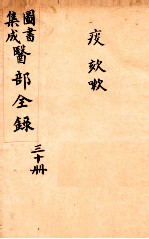 痰 欬嗽
圖書集成醫部全錄
三十册